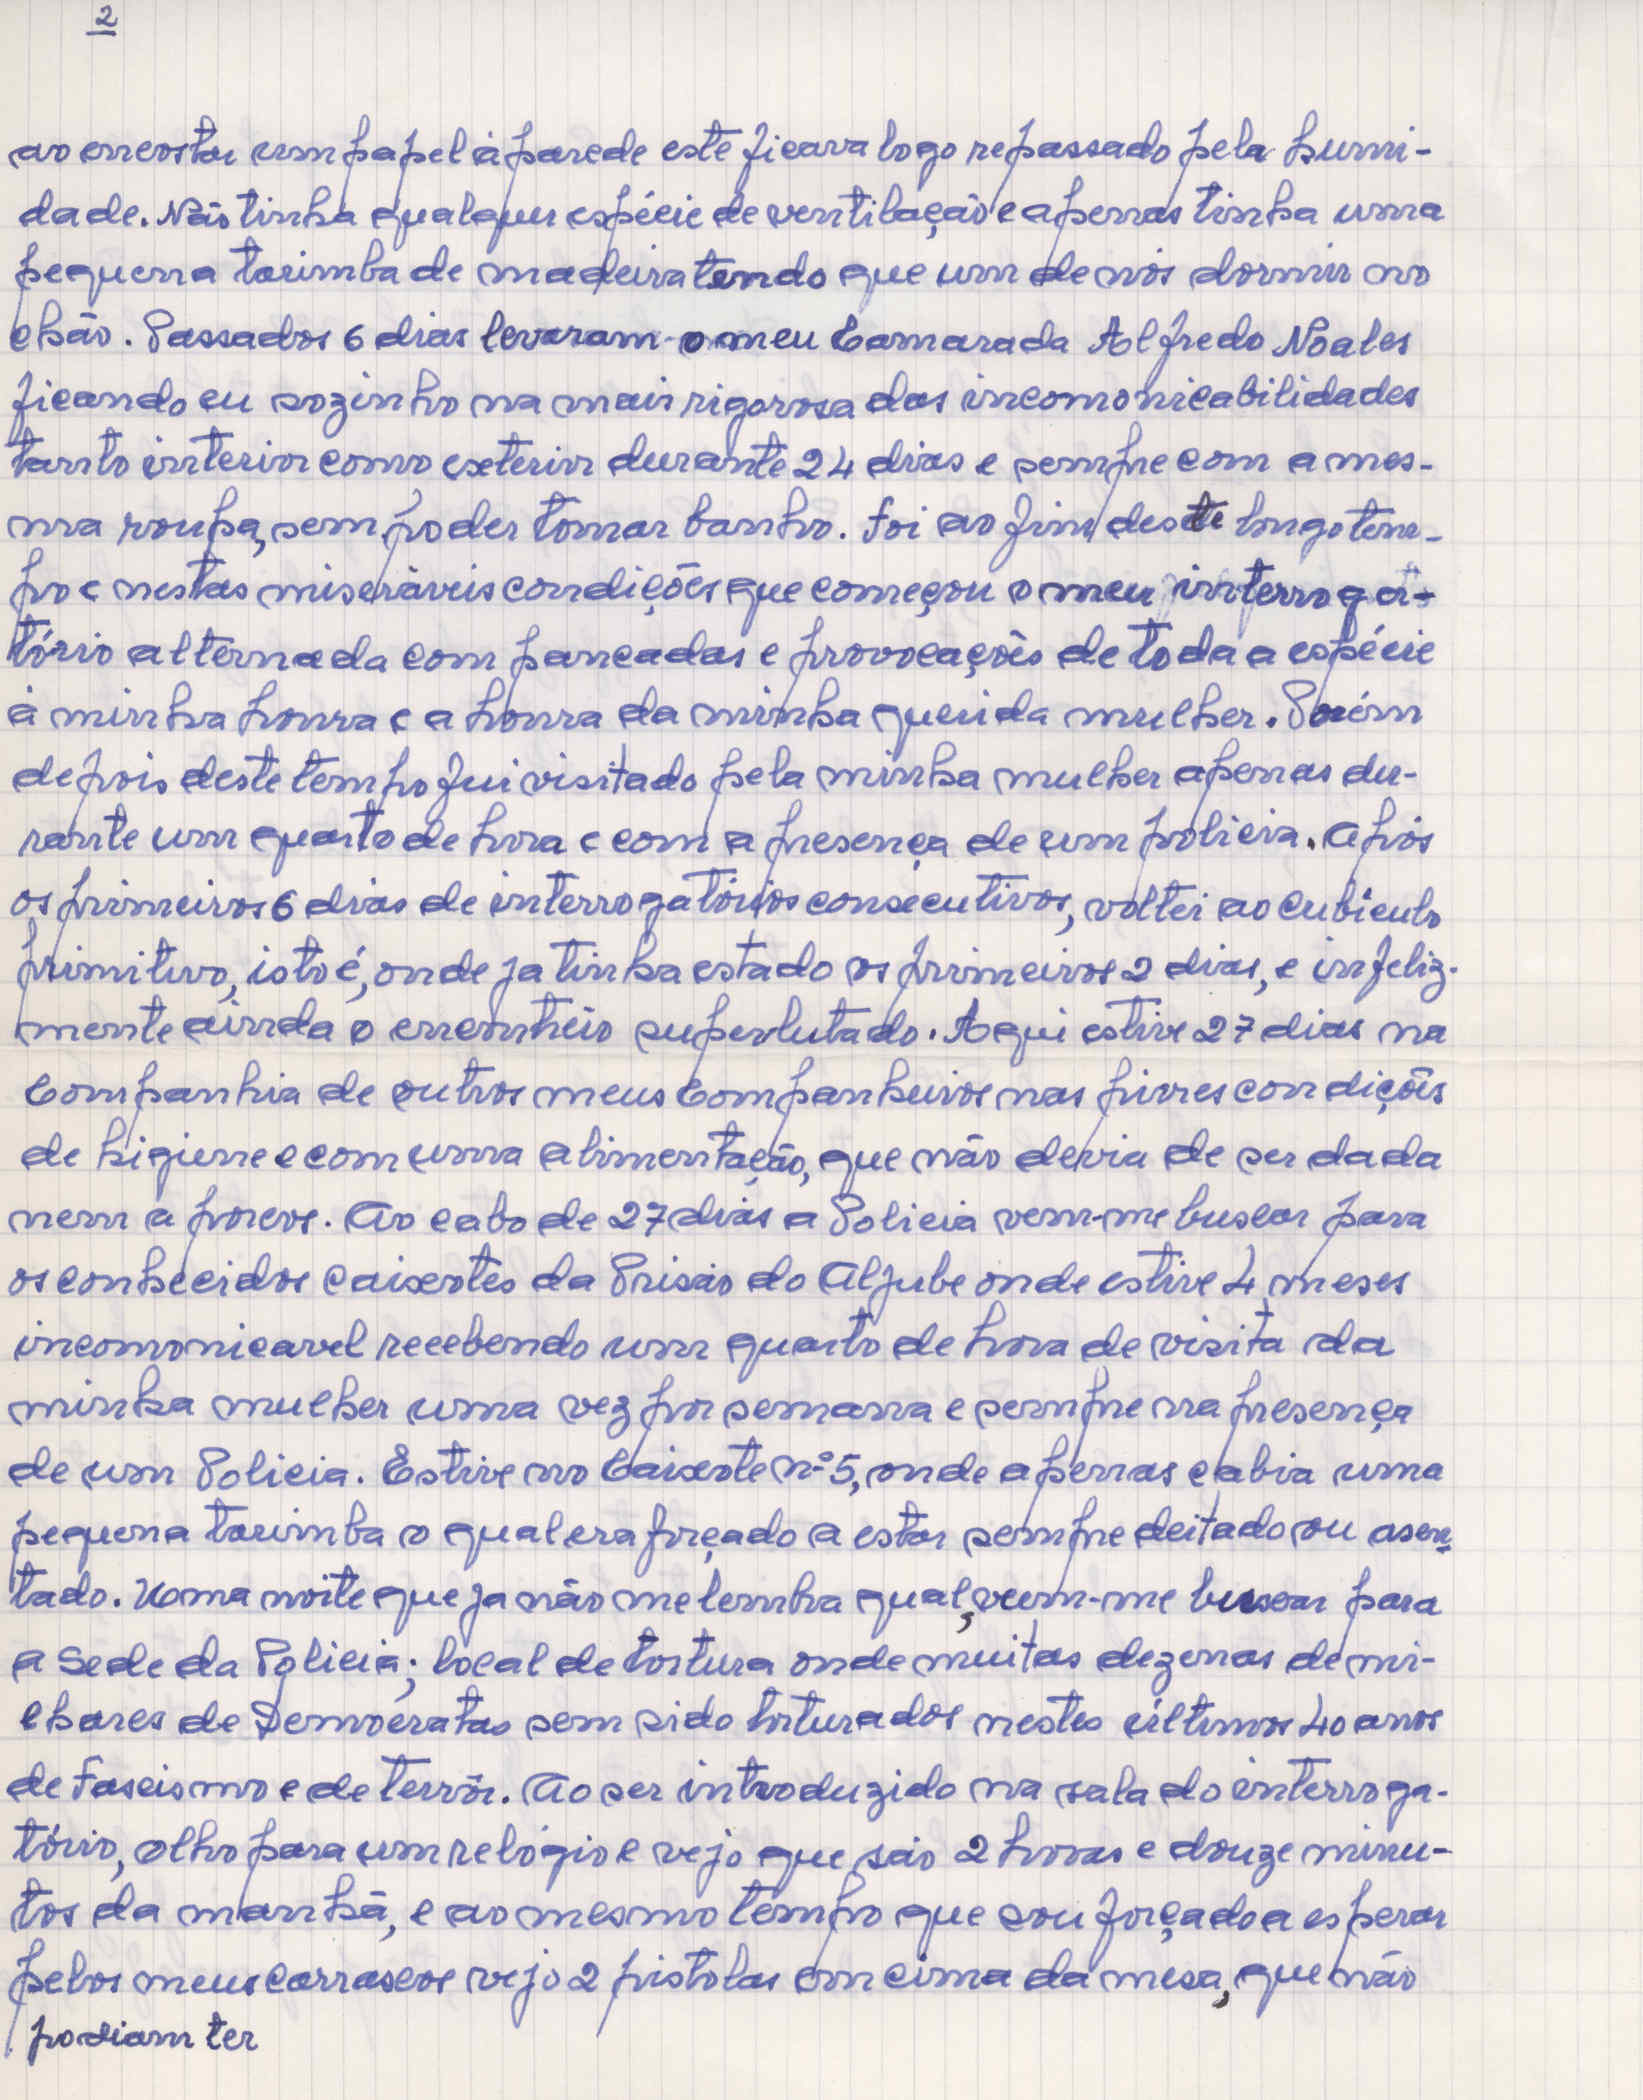 2
ao encostar um papel à parede este ficava logo repassado pela humi-
dade. Não tinha qualquer espécie de ventilação e apenas tinha uma
pequena tarimba de madeira tendo que um de nós dormir no
chão. Passados 6 dias levaram-o meu Camarada Alfredo Noales
ficando eu sozinho na mais rigorosa das incomonicabilidades
tanto interior como exterior durante 24 dias e sempre com a mes-
ma roupa, sem poder tomar banho. Foi ao fim deste longo tem-
po e nestas miseràveis condições que começou o meu interrogá-
tório alternada com pancadas e provocações de toda a espécie
à minha honra e a honra da minha querida mulher. Porém
depois deste tempo fui visitado pela minha mulher apenas du-
rante um quarto de hora e com a presença de um policia. Após
os primeiros 6 dias de interrogatórios consecutivos, voltei ao cubículo
primitivo, isto é, onde ja tinha estado os primeiros 2 dias, e infeliz-
mente ainda o encontreio superlutado. Aqui estive 27 dias na
Companhia de outros meus Companheiros nas piores condições
de higiene e com uma alimentação, que não devia de ser dada
nem a porcos. Ao cabo de 27 dias a Policia vem-me buscar para
os conhecidos caixotes da Prisão do Aljube onde estive 4 meses
incomonicavel recebendo um quarto de hora de visita da
minha mulher uma vez por semana e sempre na presença
de um Policia. Estive no Caixote nº 5, onde apenas cabia uma
pequena tarimba o qual era forçado a estar sempre deitado ou asen-
tado. Uma noite que ja não me lembra qual, veem-me buscar para
a Sede da Policia; local de tortura onde muitas dezenas de mi-
lhares de Democratas sem sido torturados nestes últimos 40 anos
de Fascismo e de terrôr. Ao ser introduzido na sala do interroga-
tório, olho para um relógio e vejo que são 2 horas e douze minu-
tos da manhã, e ao mesmo tempo que sou forçado a esperar
pelos meus carrascos vejo 2 pistolas em cima da mesa, que não
podiam ter